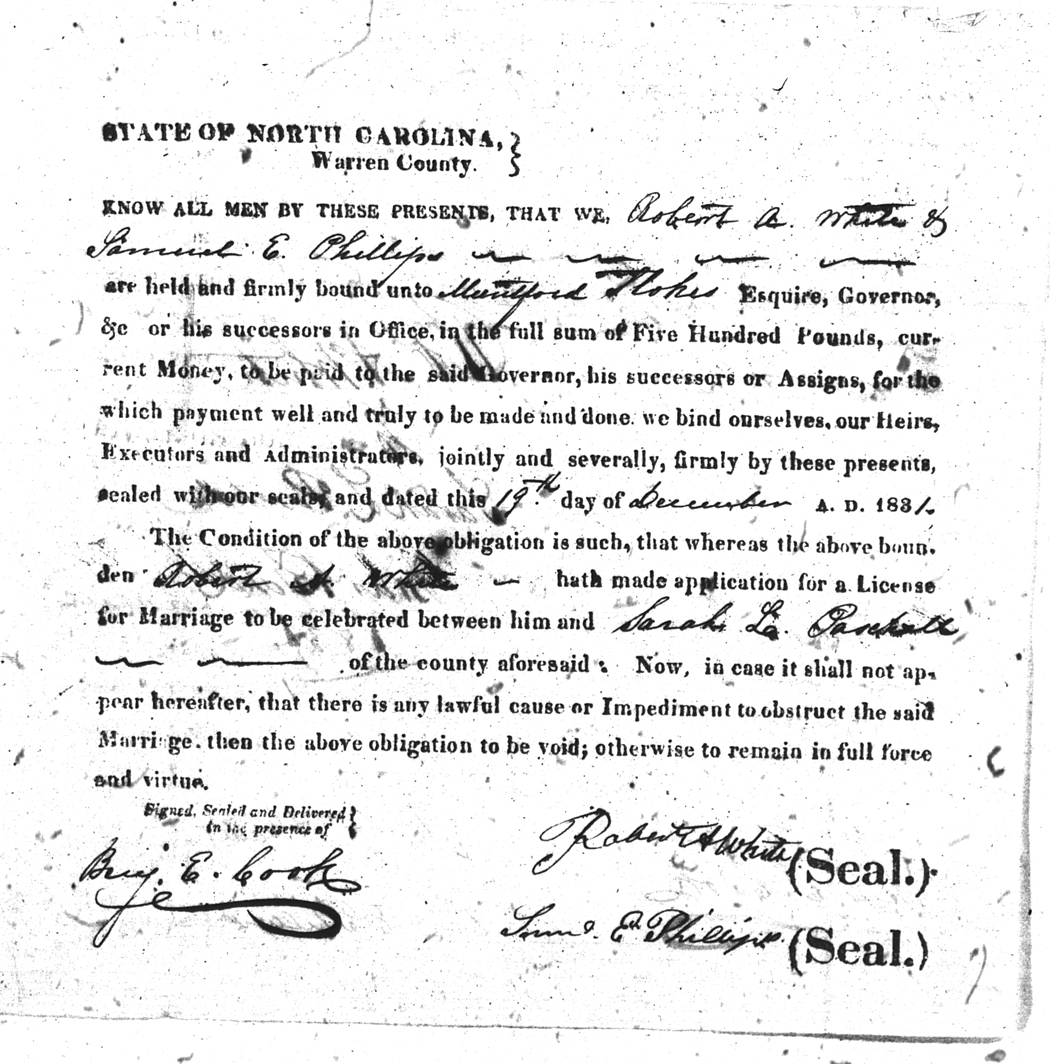 STATE OF NORTH CAROLINA,
Warren County.
KNOW ALL MEN BY THESE PRESENTS, THAT WE, Robert A. White &
Samuel E. Phillips
are held and firmly bound unto Muntford Stokes Esquire, Governor,
&c or his successors in Office, in the full sum of Five Hundred Pounds, cur-
rent Money, to be paid to the said Governor, his successors or Assigns, for the
which payment well and truly to be made and done. we bind ourselves, our Heirs,
Executors and Administrators, jointly and severally, firmly by these presents,
sealed with our seals, and dated this 19th day of December A. D. 1831.
The Condition of the above obligation is such, that whereas the above boun.
den Robert A. White hath made application for a License
for Marriage to be celebrated between him and Sarah L. Paschall
of the county aforesaid: Now, in case it shall not ap-
pear hereafter, that there is any lawful cause or Impediment to obstruct the said
Marriage. then the above obligation to be void; otherwise to remain in full force
and virtue.
Signed, Sealed and Delivered
in the presence of
Benj. E. Cook
Robert A White (Seal.)
Saml. E. Phillips (Seal.)